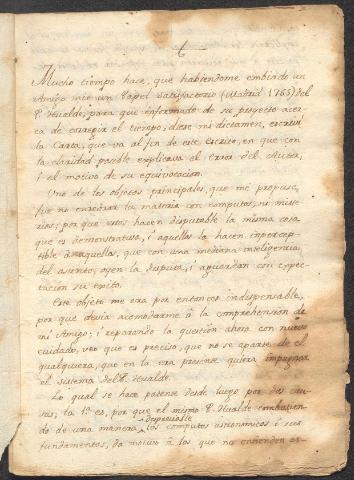 Mucho tiempo hace, que habiendome embiado un
Amigo mio un Papel satisfactorio (Madrid 1765) del
P. Hualde, para que informado de su proyecto acer-
ca de corregir el tiempo, diese mi dictamen, escriví
la Carta, que va al fin de este Escrito, en que con
la claridad posible explicava el Error del Autor,
i el motivo de su equivocacion.
Uno de los objetos principales, que me propuse,
fue no enredar la materia con computos, ni miste-
rios; por que estos hacen disputable la misma cosa
que es demonstrativa, i aquellos la hacen impercep-
tible a aquellos, que con una mediana inteligencia
del asunto, oyen la disputa, i aguardan con expec-
tacion su exito.
Este objeto me era por entonces indispensable,
por que devia acomodarme á la comprehension de
mi Amigo; i reparando la question ahora con nuevo
cuidado, veo que es preciso, que no se aparte de el
qualquiera, que en la era presente quiera impugnar
el sistema del P. Hualde.
Lo qual se hace patente desde luego por dos cau-
sas; la 1a es, por que el mismo P. Hualde combatien-
do de una manera despreciable los computos astronomicos i sus
fundamentos, da motivo á los que no entienden es-